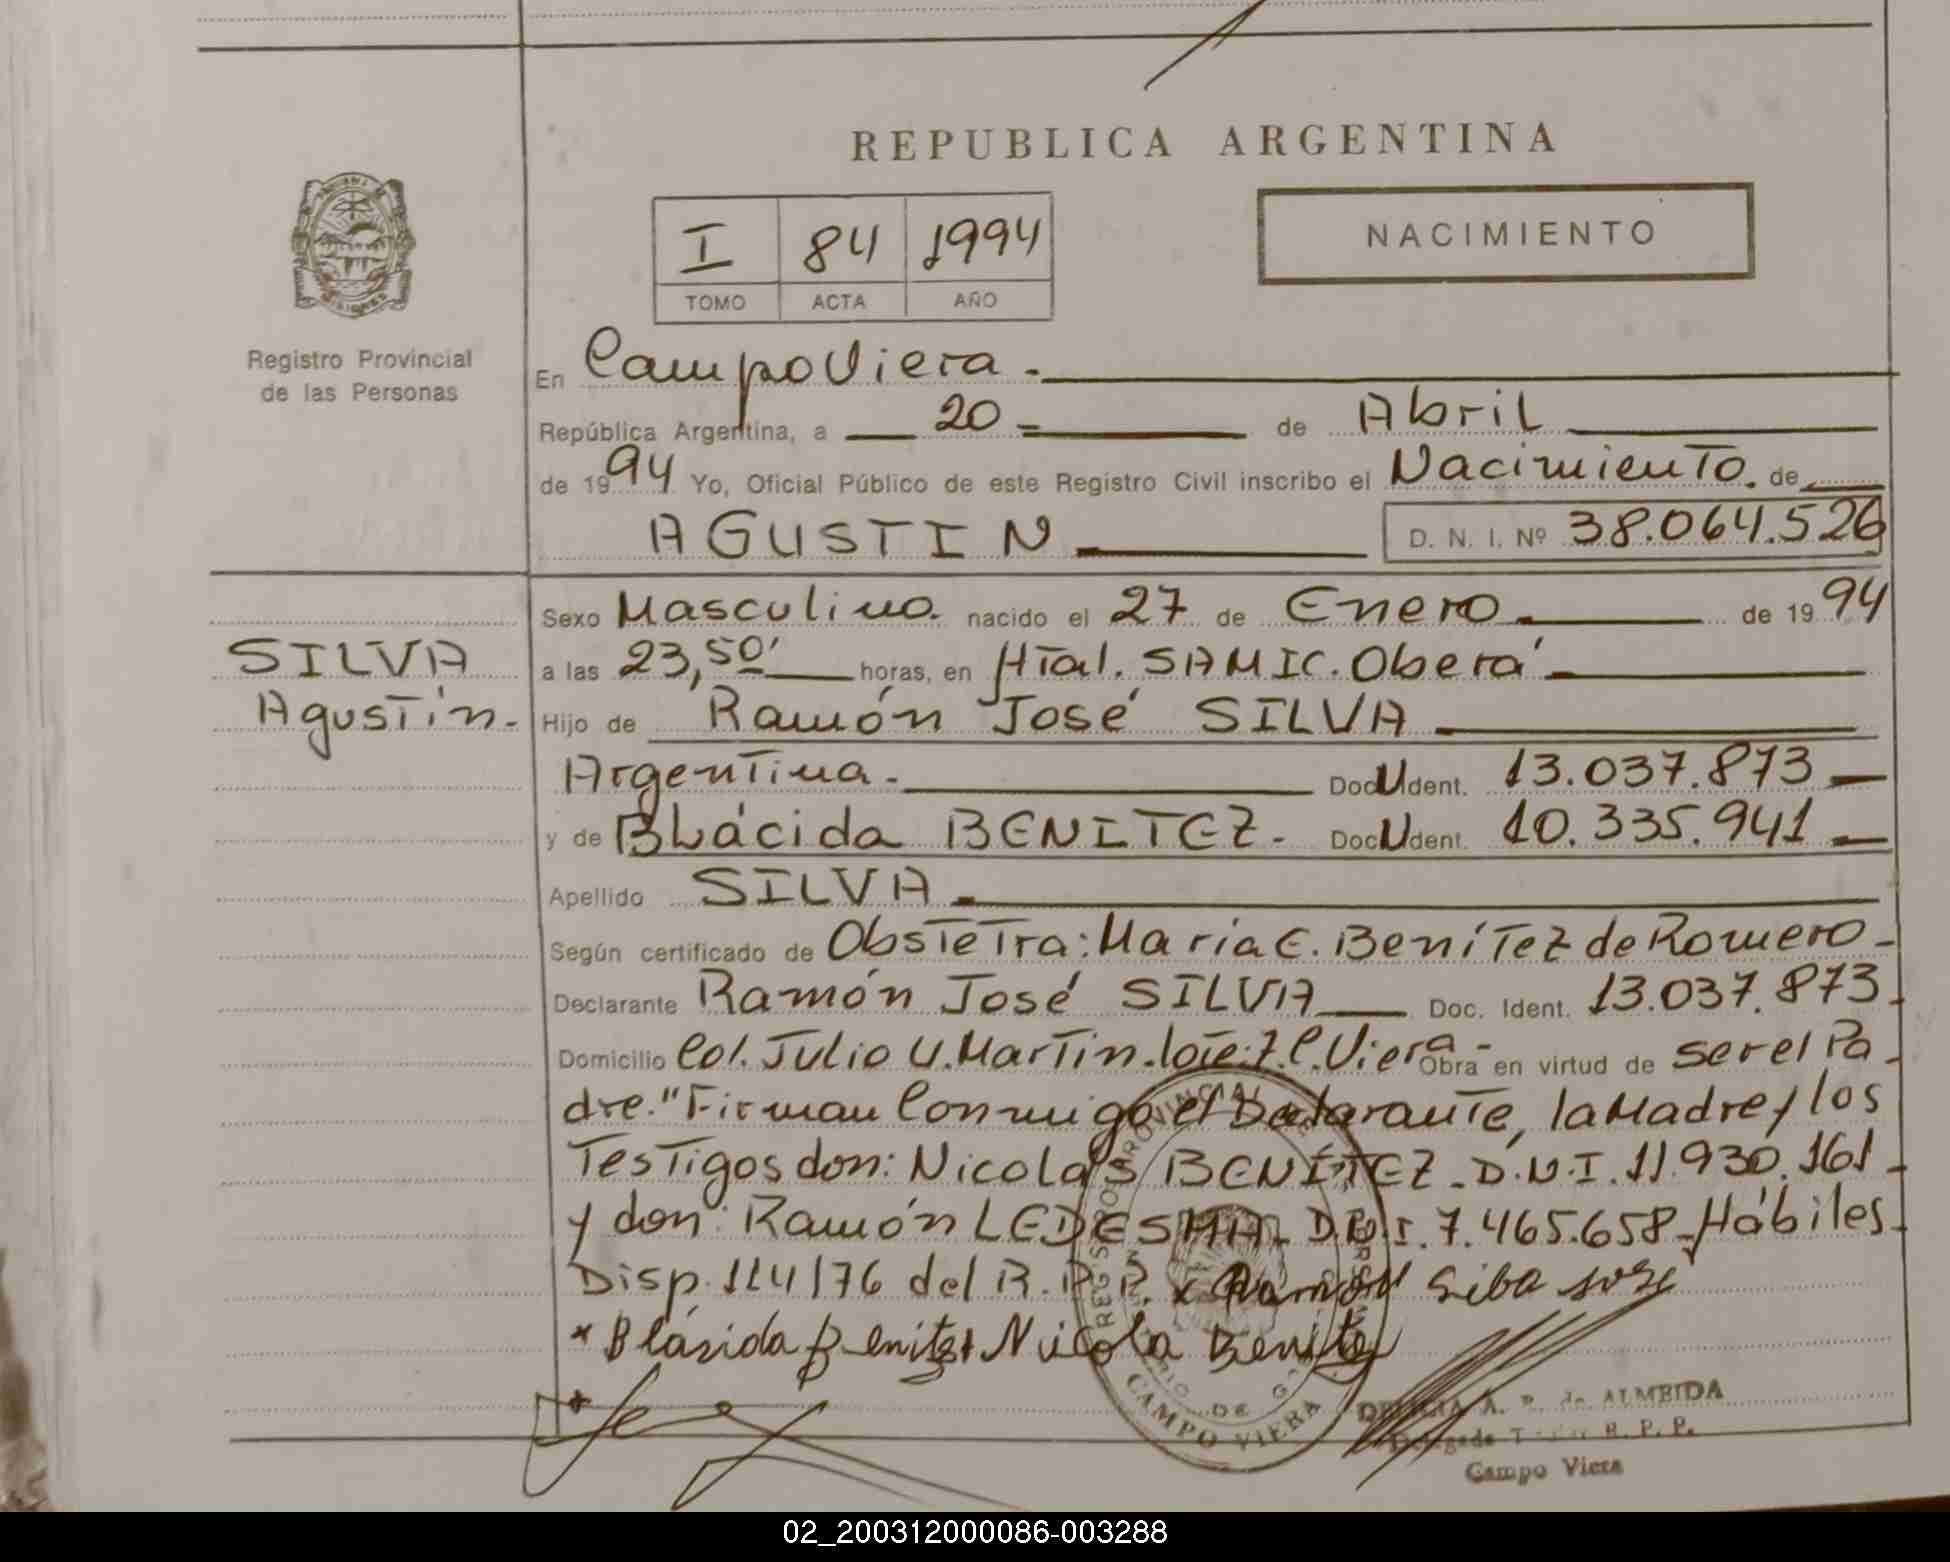 REPUBLICA ARGENTINA
I 84 1994
TOMO ACTA AÑO
NACIMIENTO
Registro Provincial
de las Personas
En Campo Viera.
República Argentina, a 20 de Abril
de 1994 Yo, Oficial Público de este Registro Civil inscribo el Nacimiento. de
AGUSTIN D. N. I. Nº 38.064.526
Sexo Masculino. nacido el 27 de Enero de 1994
SILVA
Agustín.
a las 23,50' horas, en Htal. SAMIC. Oberá
Hijo de Ramón José SILVA
Argentina. Doc U Ident. 13.037.873
y de BLácida BENITEZ. Doc U Ident. 10.335.941
Apellido SILVA
Según certificado de Obstetra: Maria E. Benítez de Romero
Declarante Ramón José SILVA Doc. Ident. 13.037.873
Domicilio Col. Julio U. Martin. lote: 7. C. Viera Obra en virtud de ser el Pa
dre." Firman Conmigo el Declarante, la Madre y los
Testigos don: Nicolás BENÍTEZ D.N.I. 11.930.161
y don: Ramón LEDESMA D.N.I. 7.465.658 Hábiles
Disp. 114/76 del R.P.P. x Ramon Silba
* Blásida Benites Nicola Benite
CAMPO VIERA
A. de ALMEIDA
R. P. P.
Campo Viera
02_200312000086-003288